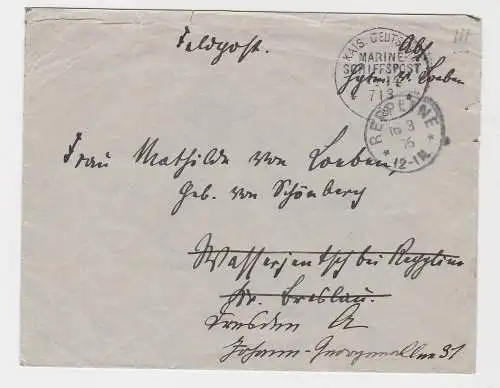 Feldpost.
Abs.
v. Loeben
KAIS. DEUTSCHE
MARINE-
SCHIFFSPOST
713
REPPLINE
16 3
12-1N.
Frau Mathilde von Loeben,
geb. von Schönberg
Wasserjentsch bei Reppline
Kr. Breslau.
Dresden A
Johann-Georgenallee 31